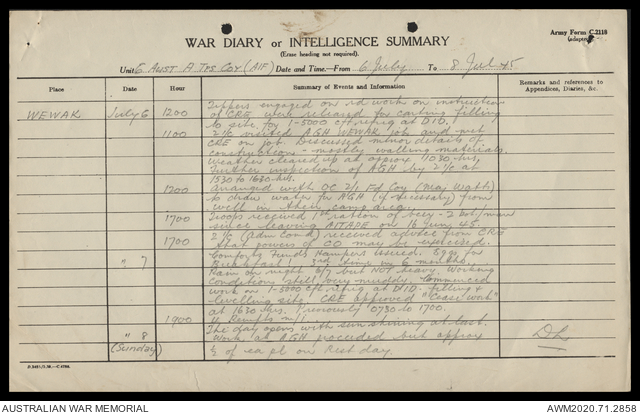 Army Form C.2118
(adapted)
WAR DIARY or INTELLIGENCE SUMMARY
(Erase heading not required).
Unit 6 AUST A TPS COY (AIF) Date and Time.—From 6 July To 8 Jul 45
Place Date Hour Summary of Events and Information Remarks and references to Appendices, Diaries, &c.
WEWAK July 6 1200 Tippers engaged on rd work on instruction
of CRE were released for carting filling
to site for 1-5000 cft refrig at DID.
1100 2 i/c visited AGH WEWAK job and met
CRE on job. Discussed minor details of
construction - mostly walling materials.
Weather cleared up at approx 1030 hrs.
Further inspection of AGH by 2 i/c at
1530 to 1630 hrs.
1200 Arranged with OC 2/1 Fd Coy (Maj Watts)
to draw water for AGH (if necessary) from
well in their camp area.
1700 Troops received 1st ration of beer - 2 bot/man
since leaving AITAPE on 16 Jun 45.
1700 2 i/c (Adm Comd) received advice from CRE
that powers of CO may be exercised.
" 7 Comforts Funds Hampers issued. Eggs for
Breakfast! 3rd time in 6 months.
Rain on night 6/7 but NOT heavy. Working
conditions still very muddy. Commenced
work on 1-5000 cft refrig at DID. filling &
levelling site. CRE approved "Cease work"
at 1630 hrs. Previously 0730 to 1700.
1900
The day opens with sun shining at last.
" 8 Work at AGH proceeded but approx
(Sunday) ½ of ea pl on Rest day.
AUSTRALIAN WAR MEMORIAL
AWM2020.71.2858